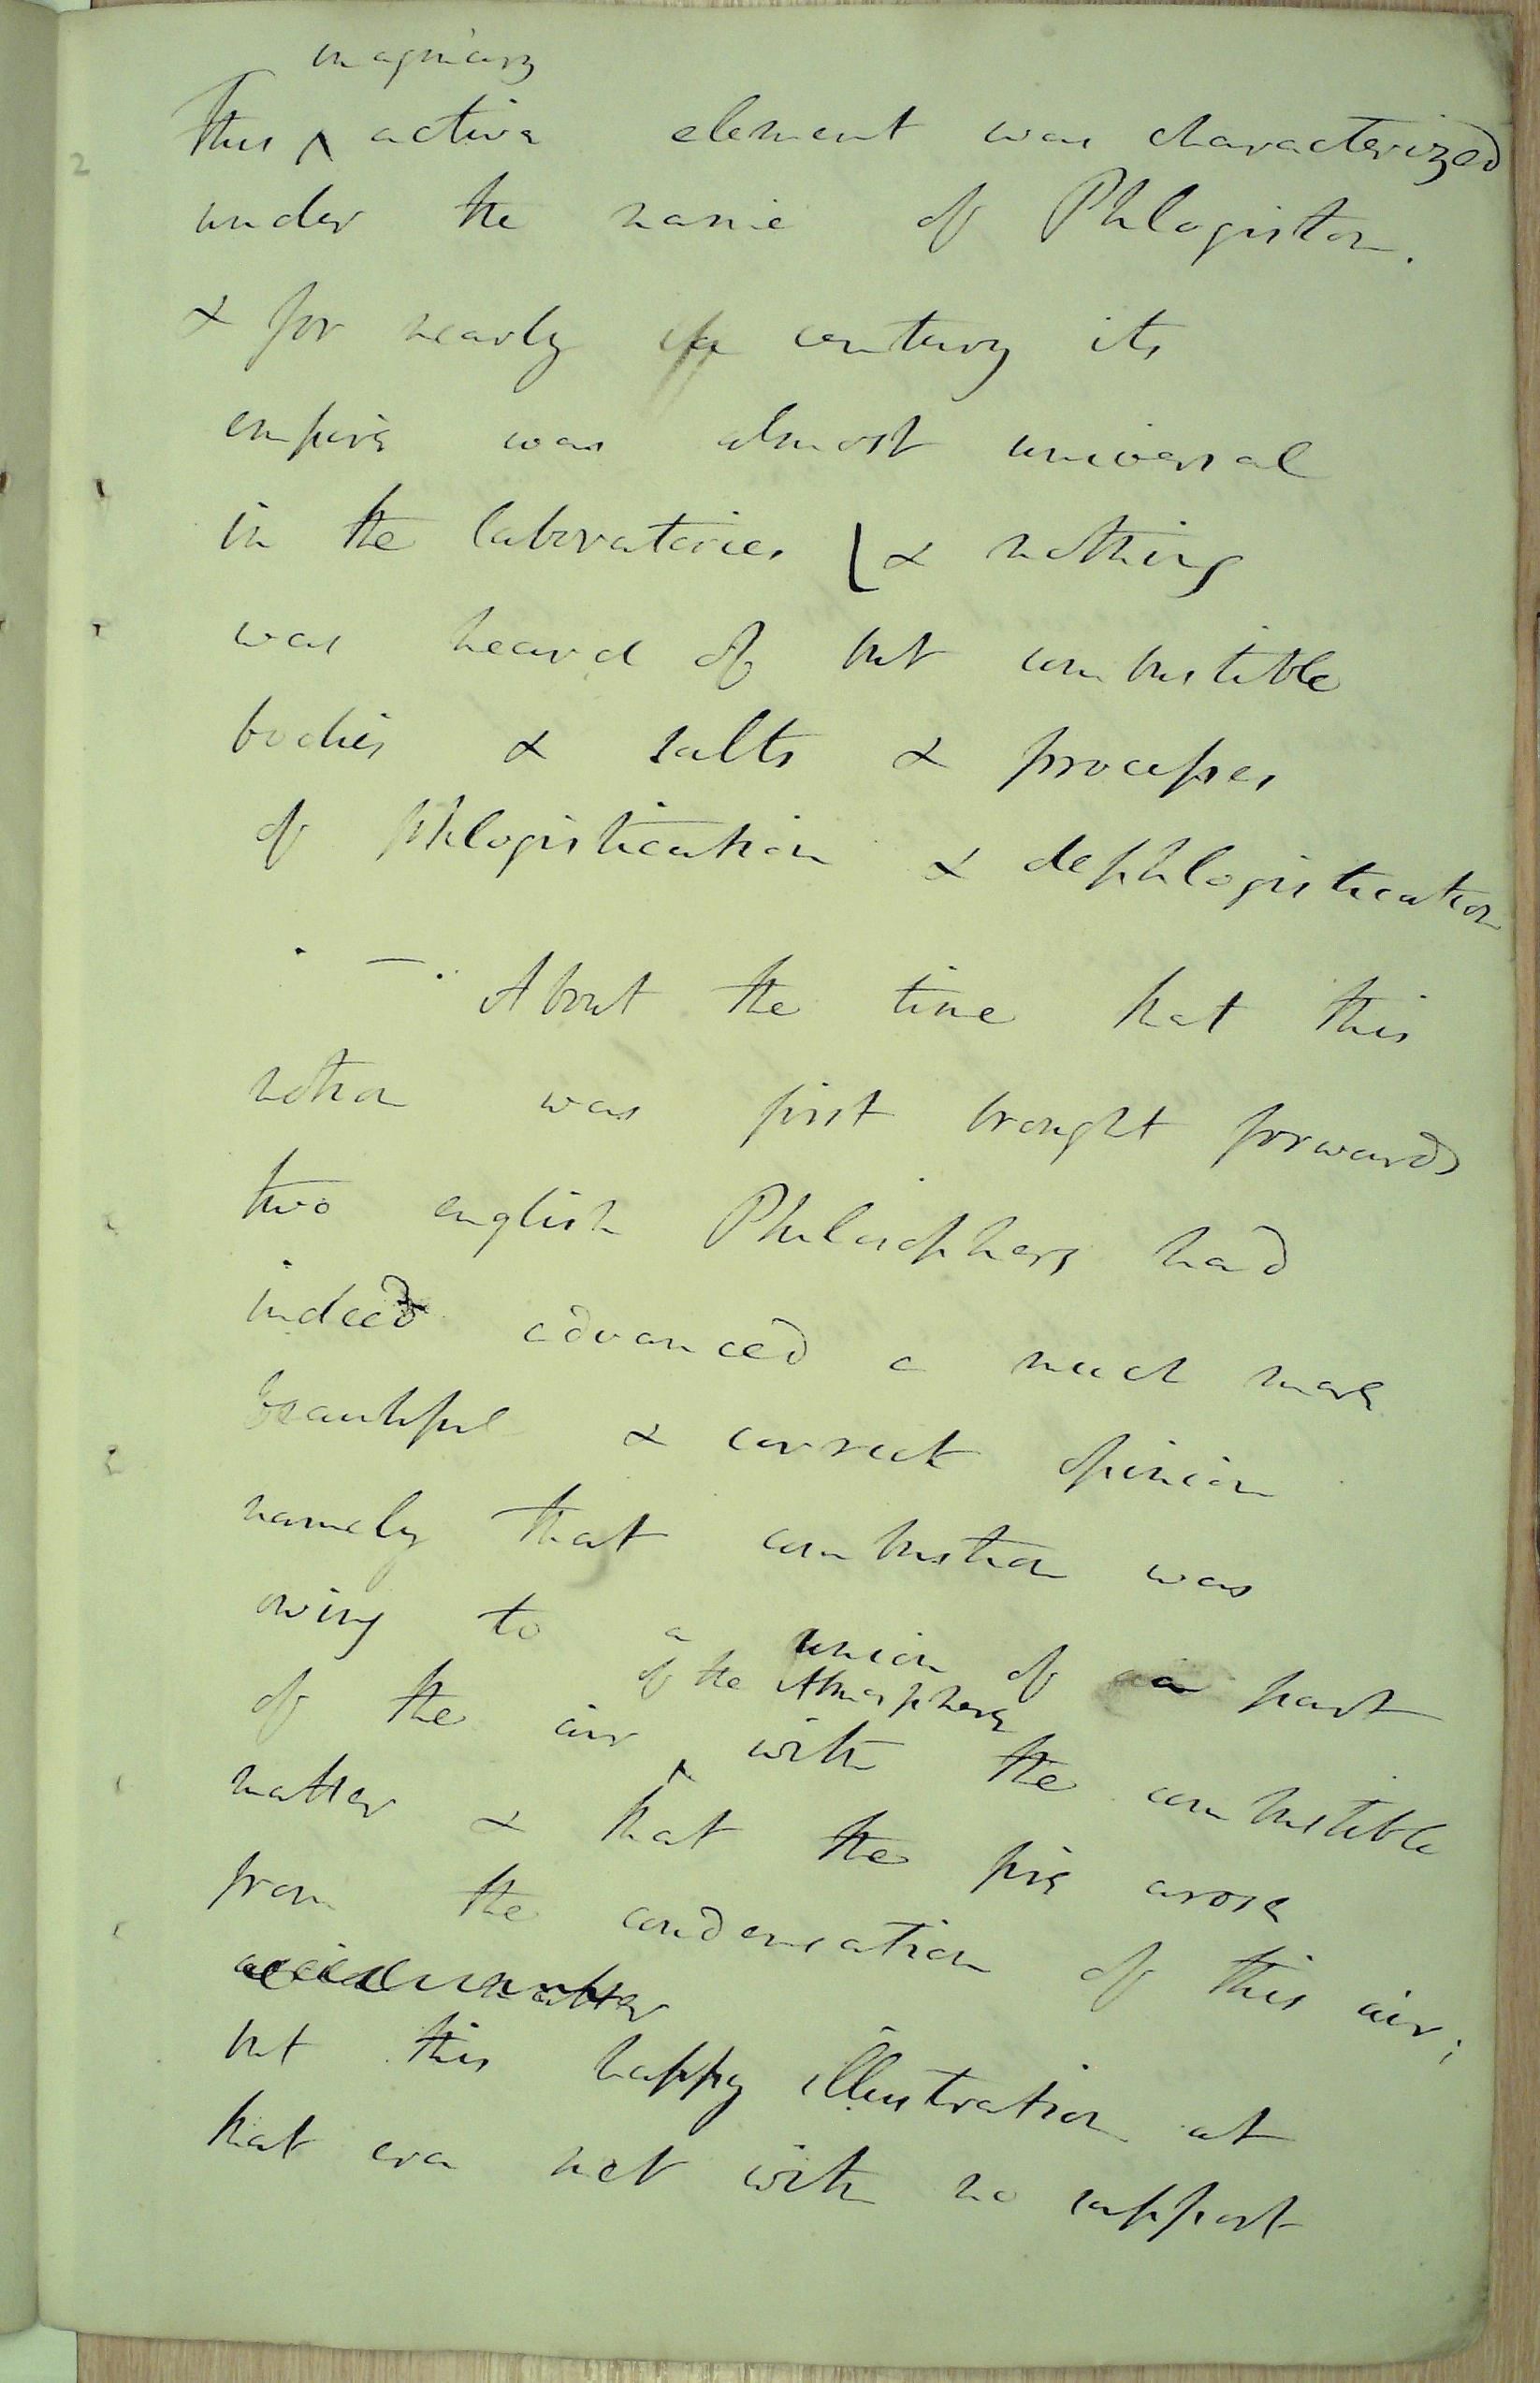 imaginary
This ^ active element was characterized
under the name of Phlogiston.
& for nearly a century its
empire was almost universal
in the laboratories & nothing
was heard of but combustible
bodies & salts & processes
of phlogistication & dephlogistication
— About the time that this
notion was first brought forwards
two english Philosophers had
indeed advanced a much more
beautiful & correct opinion
namely that combustion was
owing to a union of a part
of the Atmosphere
of the air ^ with the combustible
matter & that the fire arose
from the condensation of this air;
but this happy illustration at
that era met with no support